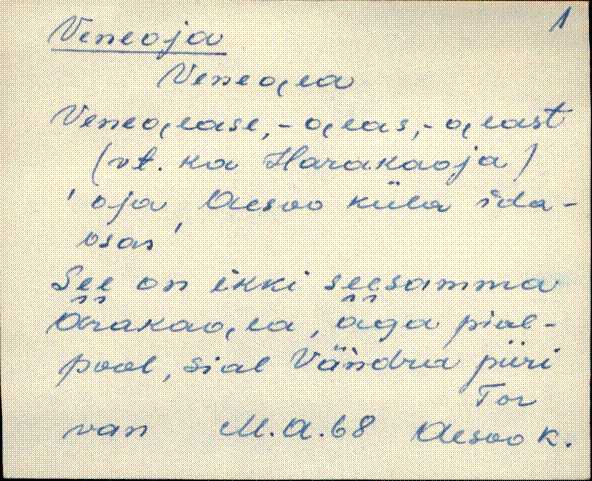 1
Veneoja
Veneo̯i̯a
Veneo̯i̯ase, -o̯i̯as, -o̯i̯ast
(vt. ka Harakaoja)
'oja Aesoo küla ida-
osas'
See on ikki seesamma
Ärakao̯i̯a, äga pial-
pool, sial Vändra piiri
Tor
van M.A.68 Aesoo k.